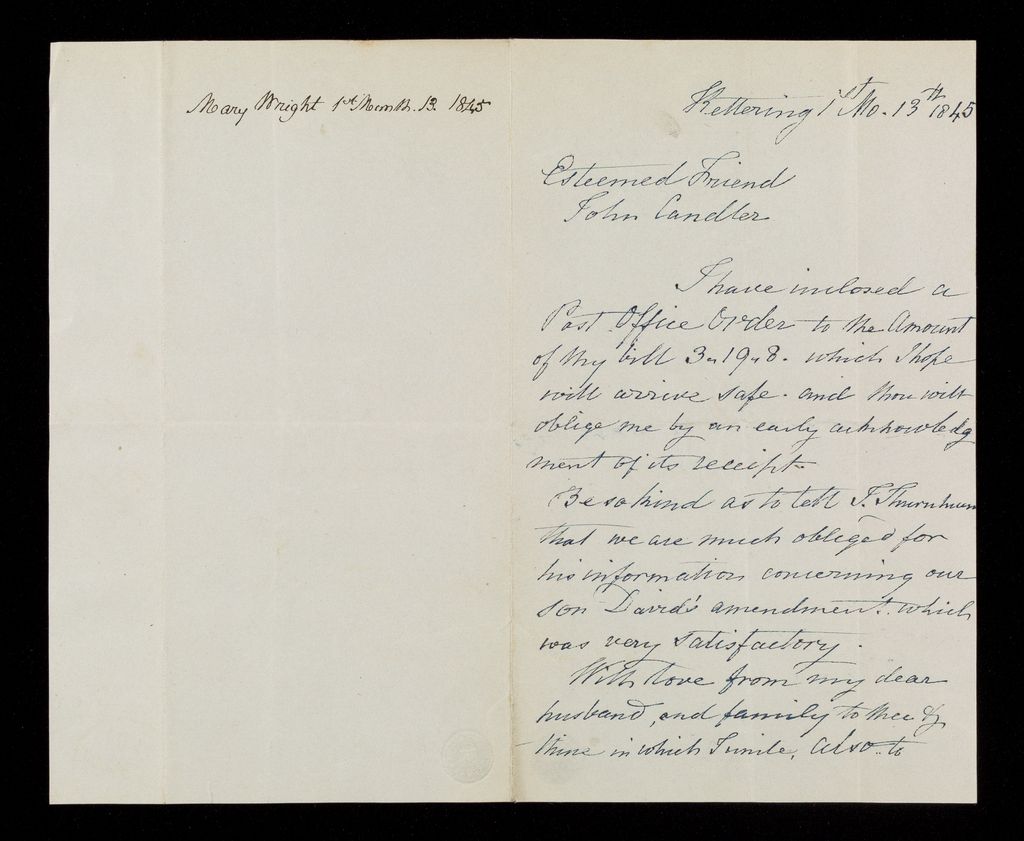 Mary Wright 1st Month. 13. 1845
Kettering 1st Mo. 13th 1845
Esteemed Friend
John Candler
I have inclosed a
Post Office Order to the Amount
of thy bill 3"19"8. which I hope
will arrive safe. and thou wilt
oblige me by an early acknowledg
ment of its receipt.
Be so kind as to tell F. Thurnham
that we are much obliged for
his information concerning our
son David's amendment. which
was very satisfactory.
With love from my dear
husband, and family to thee &
thine in which I unite, also to